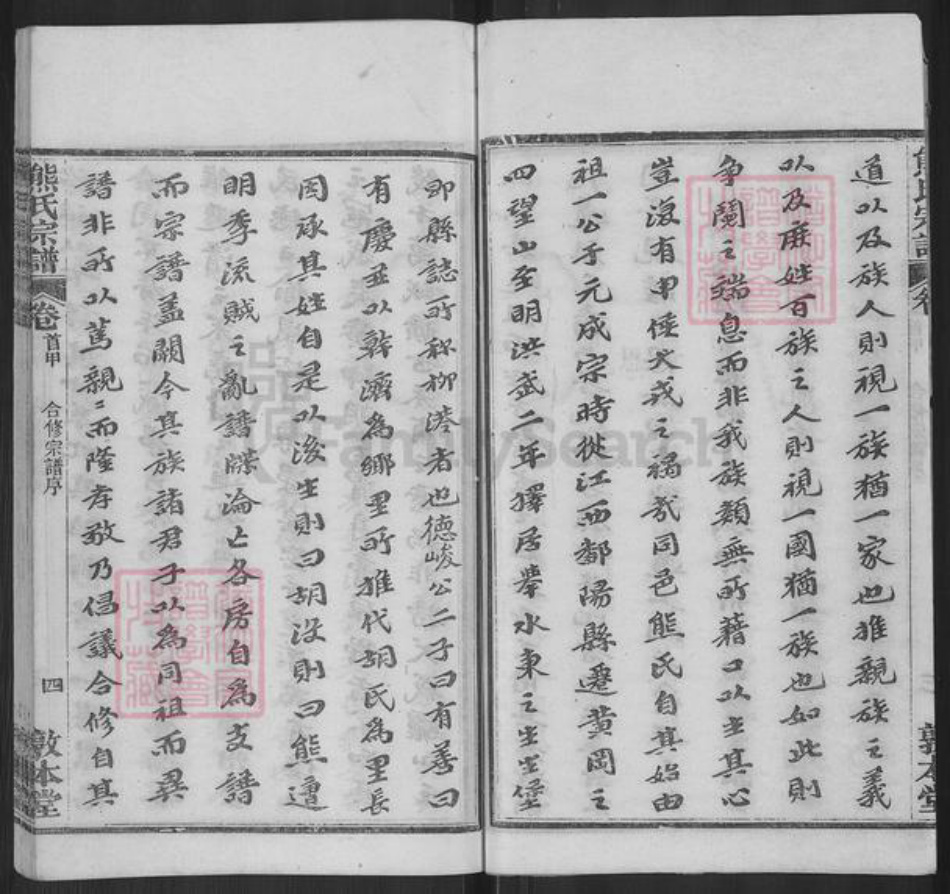 道以及族人則視一族猶一家也推親族之義
以及庶姓百族之人則視一國猶一族也如此則
爭鬩之端息而非我族類無所藉口以生其心
豈復有申侄犬戎之禍哉同邑熊氏自其始由
祖一公于元成宗時從江西鄱陽縣遷黃岡之
四望山至明洪武二年擇居舉水東之生生堡
即縣誌所称柳港者也德峻公二子曰有善曰
有慶並以幹濟為鄉里所推代胡氏為里長
因承其姓自是以後生則曰胡沒則曰熊遭
明季流賊之亂譜牒淪亡各房自為支譜
而宗譜蓋闕今其族諸君子以為同祖而異
譜非所以篤親親而隆孝敬乃倡議合修自其
熊氏宗譜 卷首甲 合修宗譜序 四 敦本堂
FamilySearch